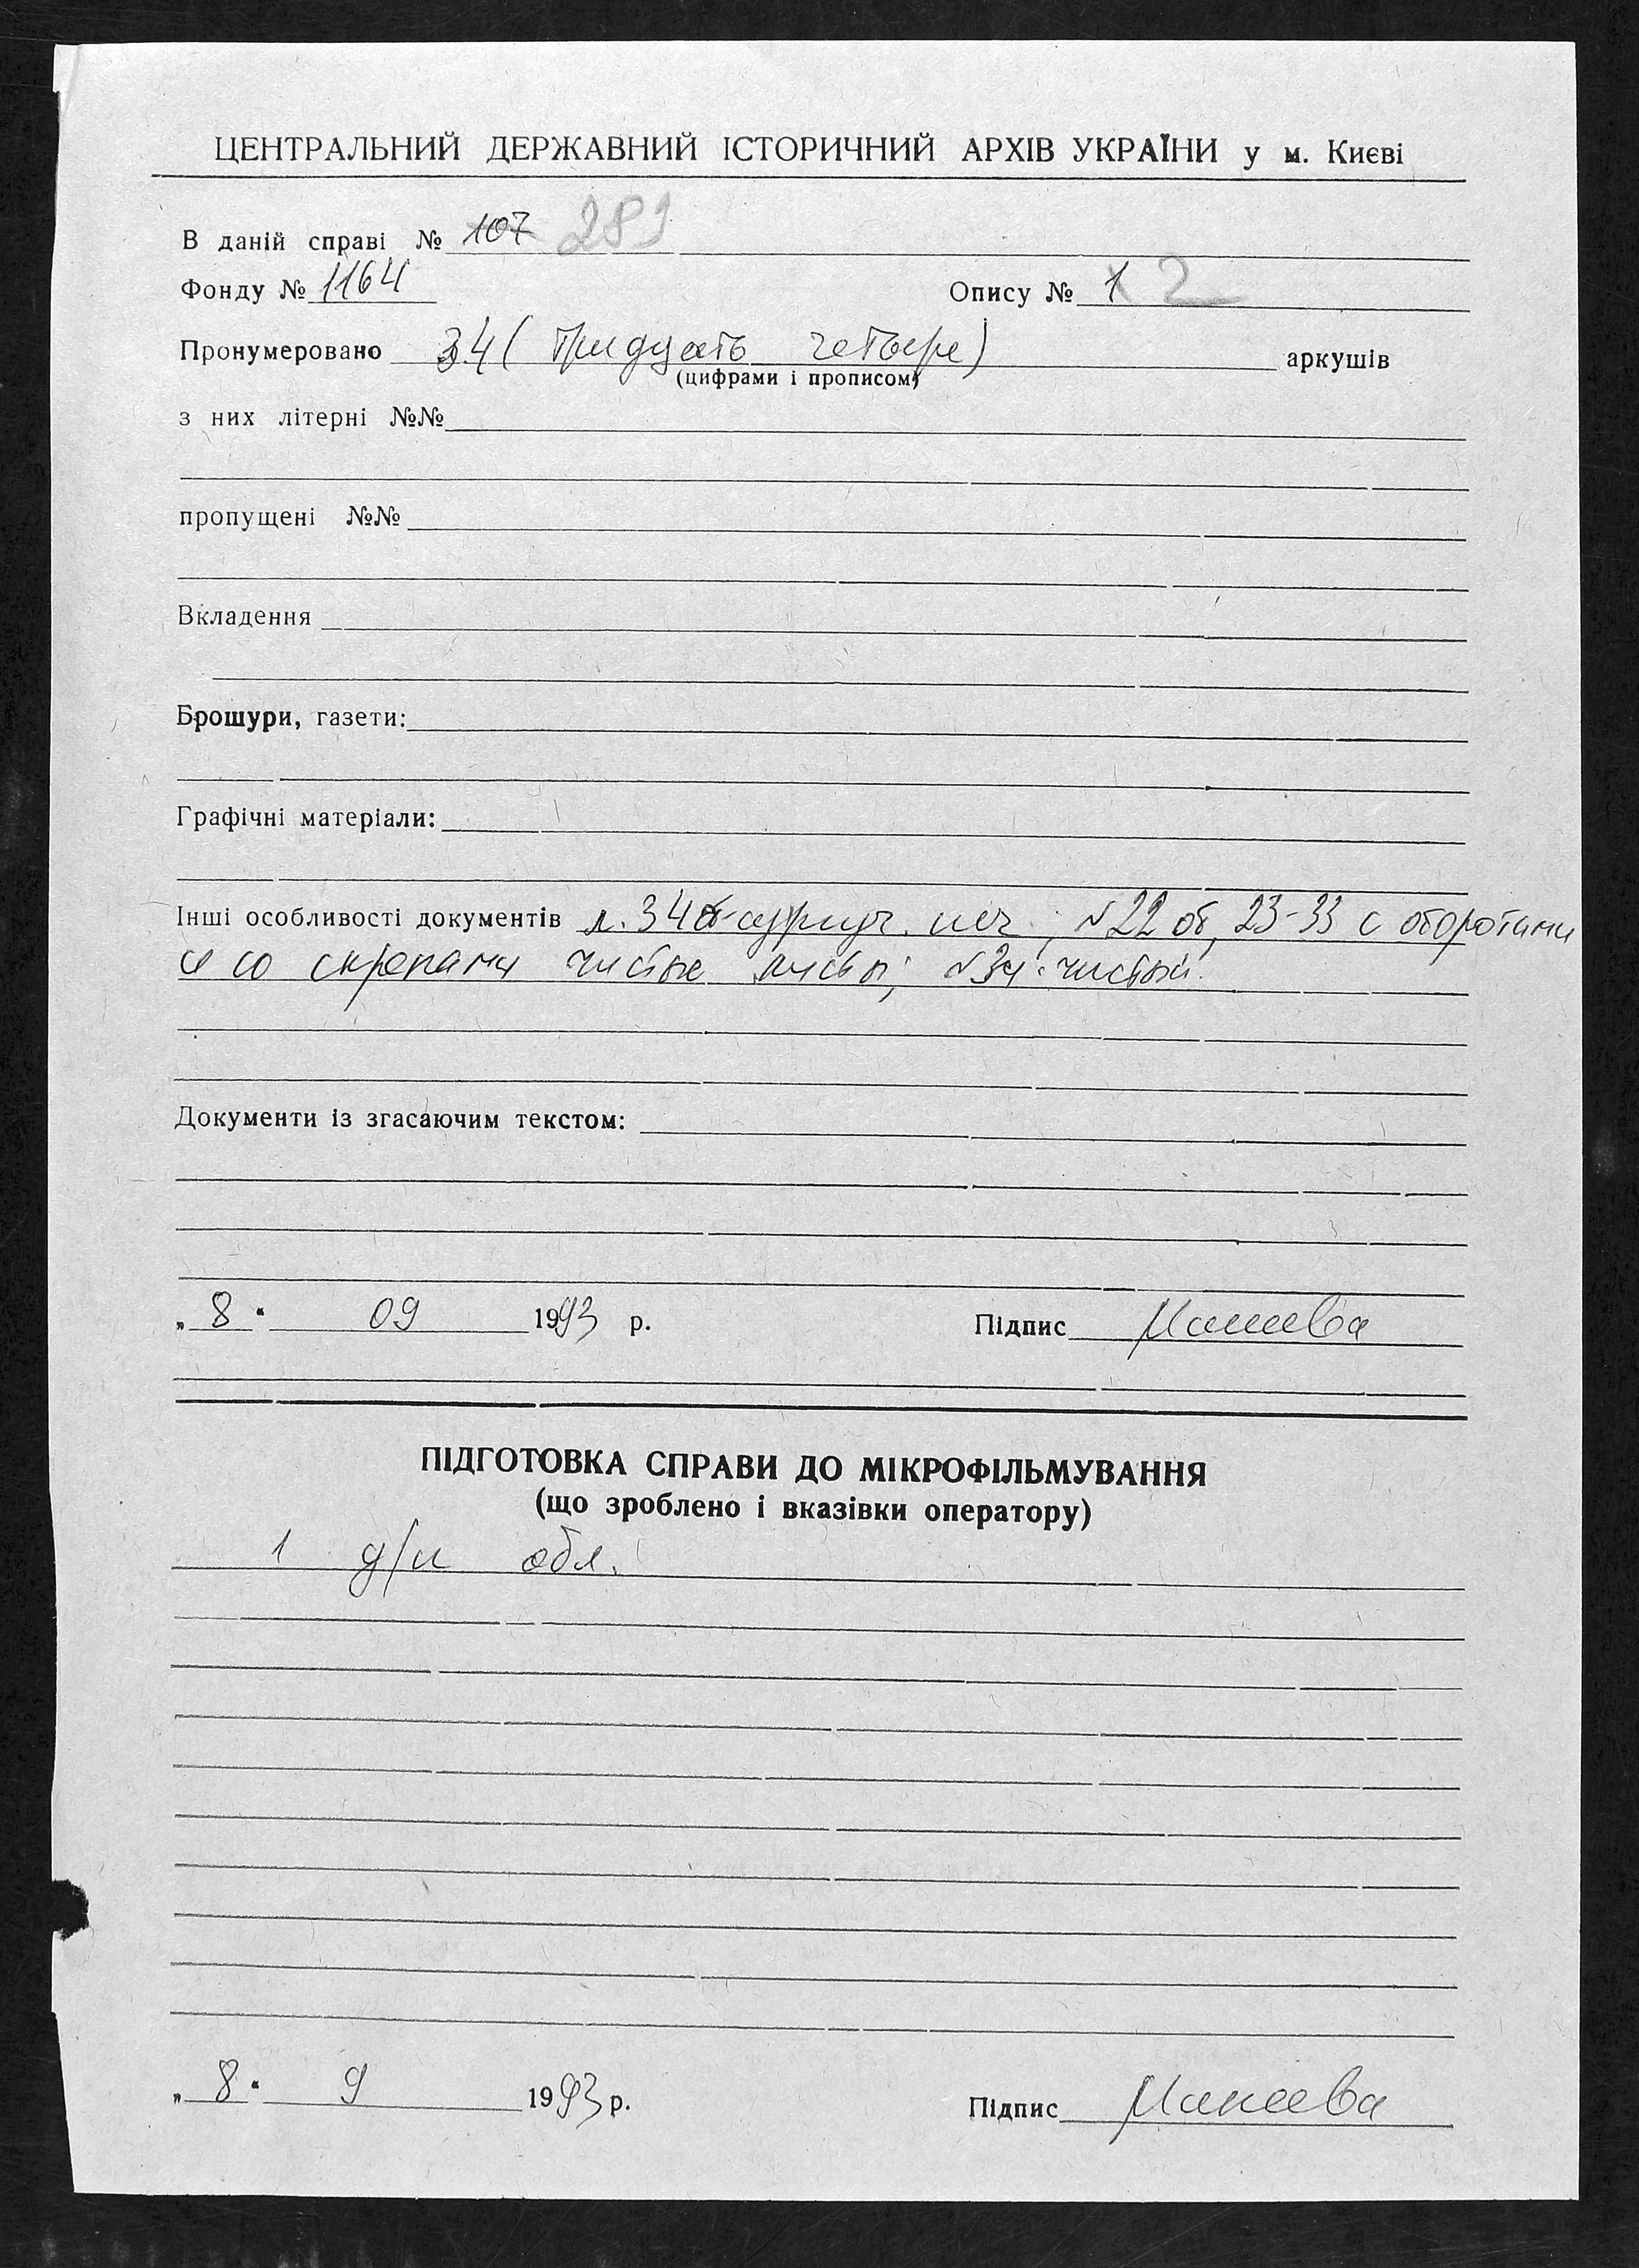 ЦЕНТРАЛЬНИЙ ДЕРЖАВНИЙ ІСТОРИЧНИЙ АРХІВ УКРАЇНИ у м. Києві
В даній справі № 107 289
Фонду № 1164 Опису № 1 2
Пронумеровано 34 ( тридцать четыре) аркушів
(цифрами і прописом)
з них літерні №№
пропущені №№
Вкладення
Брошури, газети:
Графічні матеріали:
Інші особливості документів л. 34 ; №22 об, 23-33 с оборотами
и со скрепами чистые листы; №34 чистый.
Документи із згасаючим текстом:
„ 8 “ 09 1993 р. Підпис
ПІДГОТОВКА СПРАВИ ДО МІКРОФІЛЬМУВАННЯ
(що зроблено і вказівки оператору)
1 д/н обл.
„ 8 “ 9 1993 р. Підпис